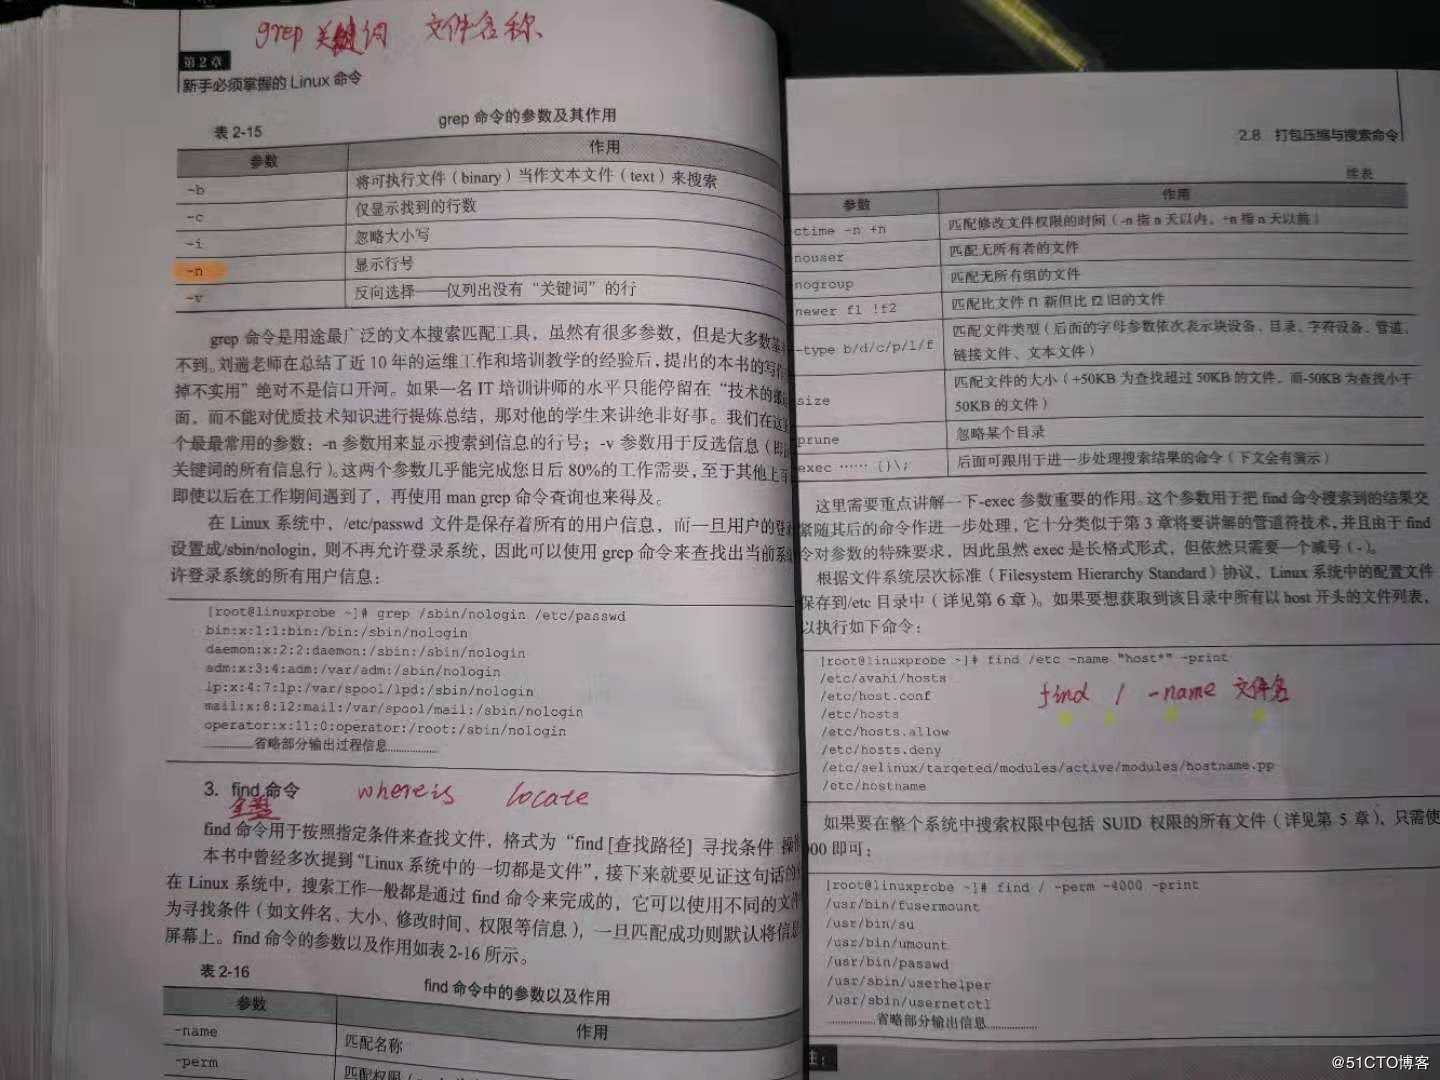 grep 关键词 文件名称
第2章
新手必须掌握的 Linux 命令
表 2-15
grep 命令的参数及其作用
参数 作用
-b 将可执行文件（binary）当作文本文件（text）来搜索
-c 仅显示找到的行数
-i 忽略大小写
-n 显示行号
-v 反向选择——仅列出没有“关键词”的行
grep 命令是用途最广泛的文本搜索匹配工具，虽然有很多参数，但是大多数基
不到。刘遄老师在总结了近 10 年的运维工作和培训教学的经验后，提出的本书的写
掉不实用”绝对不是信口开河。如果一名 IT 培训讲师的水平只能停留在“技术的
面，而不能对优质技术知识进行提炼总结，那对他的学生来讲绝非好事。我们在这
个最最常用的参数：-n 参数用来显示搜索到信息的行号；-v 参数用于反选信息（
关键词的所有信息行）。这两个参数几乎能完成您日后 80%的工作需要，至于其他上
即使以后在工作期间遇到了，再使用 man grep 命令查询也来得及。
在 Linux 系统中，/etc/passwd 文件是保存着所有的用户信息，而一旦用户的登
设置成/sbin/nologin，则不再允许登录系统，因此可以使用 grep 命令来查找出当前系
许登录系统的所有用户信息：
[root@linuxprobe ~]# grep /sbin/nologin /etc/passwd
bin:x:1:1:bin:/bin:/sbin/nologin
daemon:x:2:2:daemon:/sbin:/sbin/nologin
adm:x:3:4:adm:/var/adm:/sbin/nologin
lp:x:4:7:lp:/var/spool/lpd:/sbin/nologin
mail:x:8:12:mail:/var/spool/mail:/sbin/nologin
operator:x:11:0:operator:/root:/sbin/nologin
………………省略部分输出过程信息………………
3. find 命令 whereis locate
find 命令用于按照指定条件来查找文件，格式为“find [查找路径] 寻找条件 操
本书中曾经多次提到“Linux 系统中的一切都是文件”，接下来就要见证这句话的
在 Linux 系统中，搜索工作一般都是通过 find 命令来完成的，它可以使用不同的文件
为寻找条件（如文件名、大小、修改时间、权限等信息），一旦匹配成功则默认将信息
屏幕上。find 命令的参数以及作用如表 2-16 所示。
表 2-16
find 命令中的参数以及作用
参数 作用
-name 匹配名称
-perm 匹配权限
2.8 打包压缩与搜索命令
续表
参数 作用
ctime -n +n 匹配修改文件权限的时间（-n 指 n 天以内，+n 指 n 天以前）
nouser 匹配无所有者的文件
nogroup 匹配无所有组的文件
newer f1 !f2 匹配比文件 f1 新但比 f2 旧的文件
-type b/d/c/p/l/f 匹配文件类型（后面的字母参数依次表示块设备、目录、字符设备、管道、
链接文件、文本文件）
size 匹配文件的大小（+50KB 为查找超过 50KB 的文件，而-50KB 为查找小于
50KB 的文件）
prune 忽略某个目录
exec …… {}\; 后面可跟用于进一步处理搜索结果的命令（下文会有演示）
这里需要重点讲解一下-exec 参数重要的作用。这个参数用于把 find 命令搜索到的结果交
紧随其后的命令作进一步处理，它十分类似于第 3 章将要讲解的管道符技术，并且由于 find
令对参数的特殊要求，因此虽然 exec 是长格式形式，但依然只需要一个减号（-）。
根据文件系统层次标准（Filesystem Hierarchy Standard）协议，Linux 系统中的配置文件
保存到/etc 目录中（详见第 6 章）。如果要想获取到该目录中所有以 host 开头的文件列表，
以执行如下命令：
[root@linuxprobe ~]# find /etc -name "host*" -print
/etc/avahi/hosts
/etc/host.conf
find / -name 文件名
/etc/hosts
/etc/hosts.allow
/etc/hosts.deny
/etc/selinux/targeted/modules/active/modules/hostname.pp
/etc/hostname
如果要在整个系统中搜索权限中包括 SUID 权限的所有文件（详见第 5 章），只需使
00 即可：
[root@linuxprobe ~]# find / -perm -4000 -print
/usr/bin/fusermount
/usr/bin/su
/usr/bin/umount
/usr/bin/passwd
/usr/sbin/userhelper
/usr/sbin/usernetctl
………………省略部分输出信息………………
注：
@51CTO博客